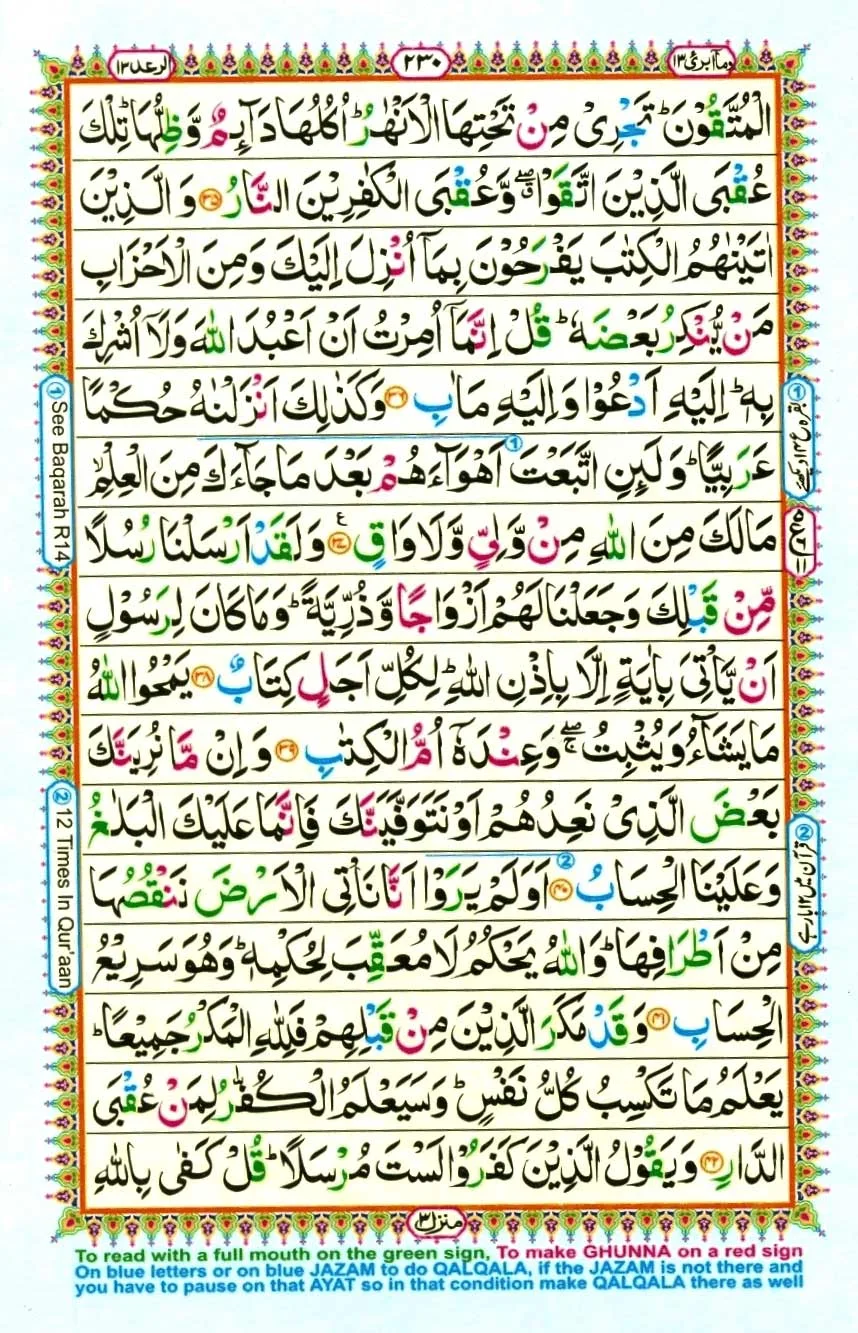 وماابرئ ١٣
٢٣٠
الرعد ١٣
الْمُتَّقُوْنَ ؕ تَجْرِیْ مِنْ تَحْتِهَا الْاَنْهٰرُ ؕ اُكُلُهَا دَآىِٕمٌ وَّ ظِلُّهَا ؕ تِلْكَ
عُقْبَی الَّذِیْنَ اتَّقَوْا ۖۗ وَّ عُقْبَی الْكٰفِرِیْنَ النَّارُ ۝۳۵ وَ الَّذِیْنَ
اٰتَیْنٰهُمُ الْكِتٰبَ یَفْرَحُوْنَ بِمَاۤ اُنْزِلَ اِلَیْكَ وَ مِنَ الْاَحْزَابِ
مَنْ یُّنْكِرُ بَعْضَهٗ ؕ قُلْ اِنَّمَاۤ اُمِرْتُ اَنْ اَعْبُدَ اللّٰهَ وَ لَاۤ اُشْرِكَ
بِهٖ ؕ اِلَیْهِ اَدْعُوْا وَ اِلَیْهِ مَاٰبِ ۝۳۶ وَ كَذٰلِكَ اَنْزَلْنٰهُ حُكْمًا
عَرَبِیًّا ؕ وَ لَىِٕنِ اتَّبَعْتَ اَهْوَآءَهُمْ بَعْدَ مَا جَآءَكَ مِنَ الْعِلْمِ ۙ
مَا لَكَ مِنَ اللّٰهِ مِنْ وَّلِیٍّ وَّ لَا وَاقٍ ۝۳۷ وَ لَقَدْ اَرْسَلْنَا رُسُلًا
مِّنْ قَبْلِكَ وَ جَعَلْنَا لَهُمْ اَزْوَاجًا وَّ ذُرِّیَّةً ؕ وَ مَا كَانَ لِرَسُوْلٍ
اَنْ یَّاْتِیَ بِاٰیَةٍ اِلَّا بِاِذْنِ اللّٰهِ ؕ لِكُلِّ اَجَلٍ كِتَابٌ ۝۳۸ یَمْحُوا اللّٰهُ
مَا یَشَآءُ وَ یُثْبِتُ ۖۚ وَ عِنْدَهٗۤ اُمُّ الْكِتٰبِ ۝۳۹ وَ اِنْ مَّا نُرِیَنَّكَ
بَعْضَ الَّذِیْ نَعِدُهُمْ اَوْ نَتَوَفَّیَنَّكَ فَاِنَّمَا عَلَیْكَ الْبَلٰغُ
وَ عَلَیْنَا الْحِسَابُ ۝۴۰ اَوَ لَمْ یَرَوْا اَنَّا نَاْتِی الْاَرْضَ نَنْقُصُهَا
مِنْ اَطْرَافِهَا ؕ وَ اللّٰهُ یَحْكُمُ لَا مُعَقِّبَ لِحُكْمِهٖ ؕ وَ هُوَ سَرِیْعُ
الْحِسَابِ ۝۴۱ وَ قَدْ مَكَرَ الَّذِیْنَ مِنْ قَبْلِهِمْ فَلِلّٰهِ الْمَكْرُ جَمِیْعًا ؕ
یَعْلَمُ مَا تَكْسِبُ كُلُّ نَفْسٍ ؕ وَ سَیَعْلَمُ الْكُفّٰرُ لِمَنْ عُقْبَی
الدَّارِ ۝۴۲ وَ یَقُوْلُ الَّذِیْنَ كَفَرُوْا لَسْتَ مُرْسَلًا ؕ قُلْ كَفٰی بِاللّٰهِ
① See Baqarah R14
② 12 Times In Qur'aan
② قرآن میں ۱۲ بار ہے
منزل ٣
To read with a full mouth on the green sign, To make GHUNNA on a red sign
On blue letters or on blue JAZAM to do QALQALA, if the JAZAM is not there and
you have to pause on that AYAT so in that condition make QALQALA there as well